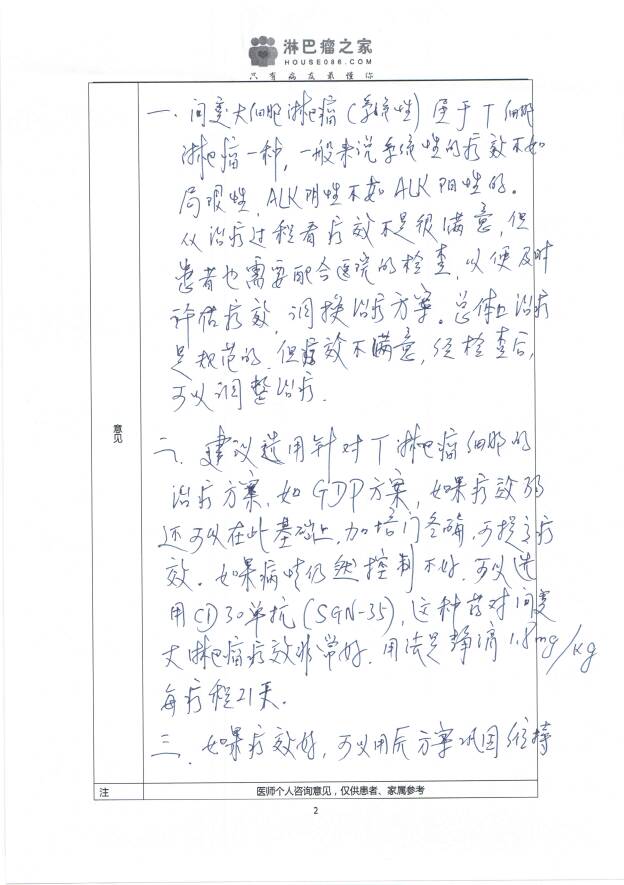 淋巴瘤之家
HOUSE086.COM
只有病友最懂你
一、间变大细胞淋巴瘤(系统性)属于T细胞
淋巴瘤一种,一般来说系统性的疗效不如
局限性,ALK阴性不如ALK阳性的。
从治疗过程看疗效不是很满意,但
患者也需要配合医院的检查,以便及时
评估疗效,调换治疗方案。总体上治疗
是规范的,但疗效不满意,经检查后,
可以调整治疗.
意见
二、建议选用针对T淋巴瘤细胞的
治疗方案,如GDP方案,如果疗效弱
还可以在此基础上,加培门冬酶,可提高疗
效。如果病情仍然控制不好,可以选
用CD30单抗(SGN-35),这种药对间变
大淋巴瘤疗效非常好.用法是静滴1.8mg/kg
每疗程21天.
三、如果疗效好,可以用原方案巩固维持
注 医师个人咨询意见,仅供患者、家属参考
2